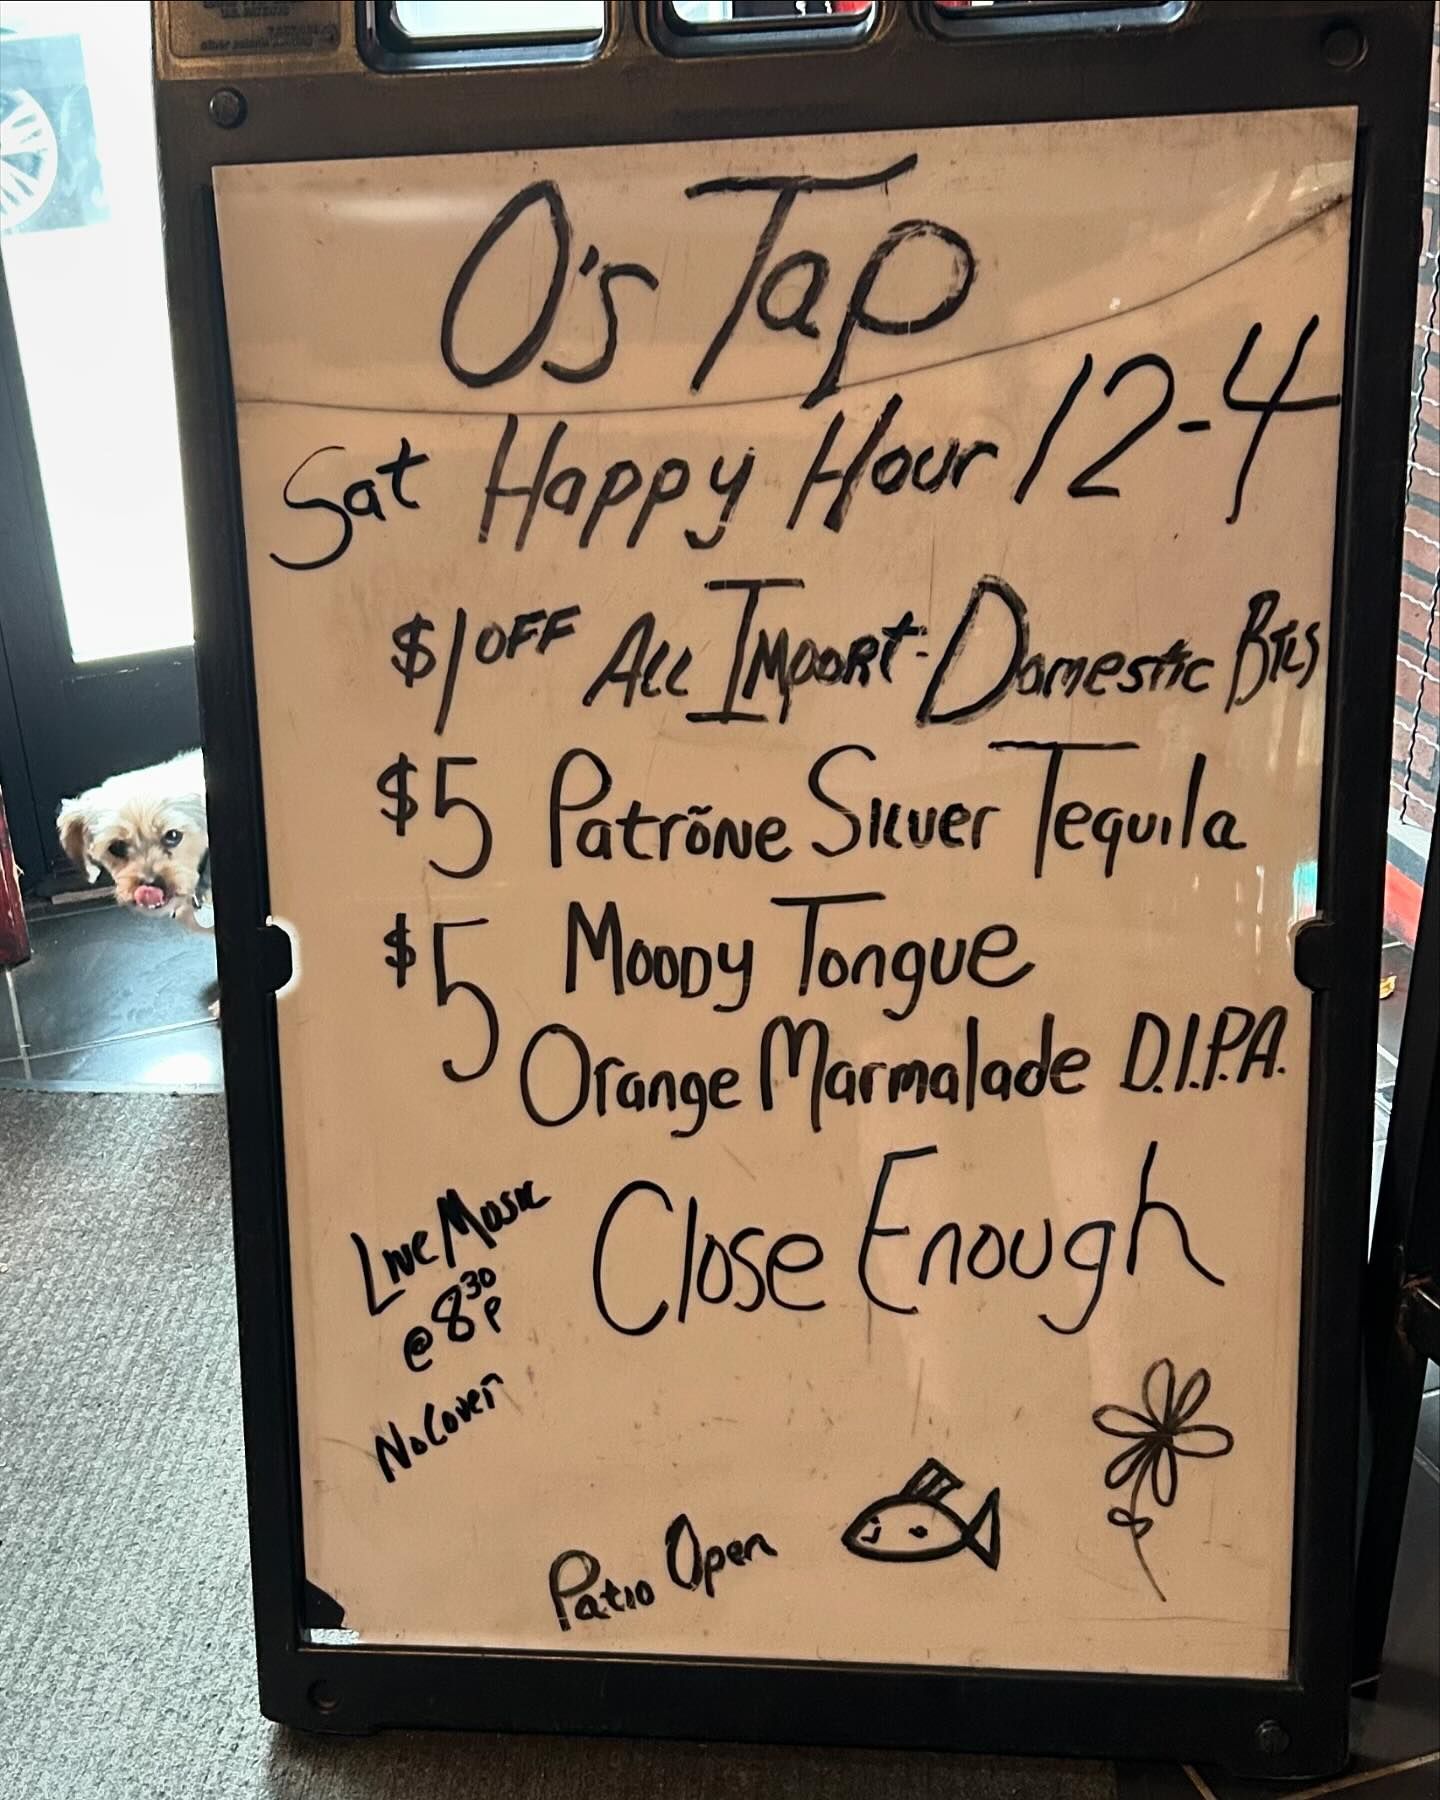 O's Tap
Sat Happy Hour 12-4
$1 OFF All Import-Domestic Btls
$5 Patrõne Silver Tequila
$5 Moody Tongue
Orange Marmalade D.I.P.A.
Live Music
@ 8 30 P
No Cover
Close Enough
Patio Open